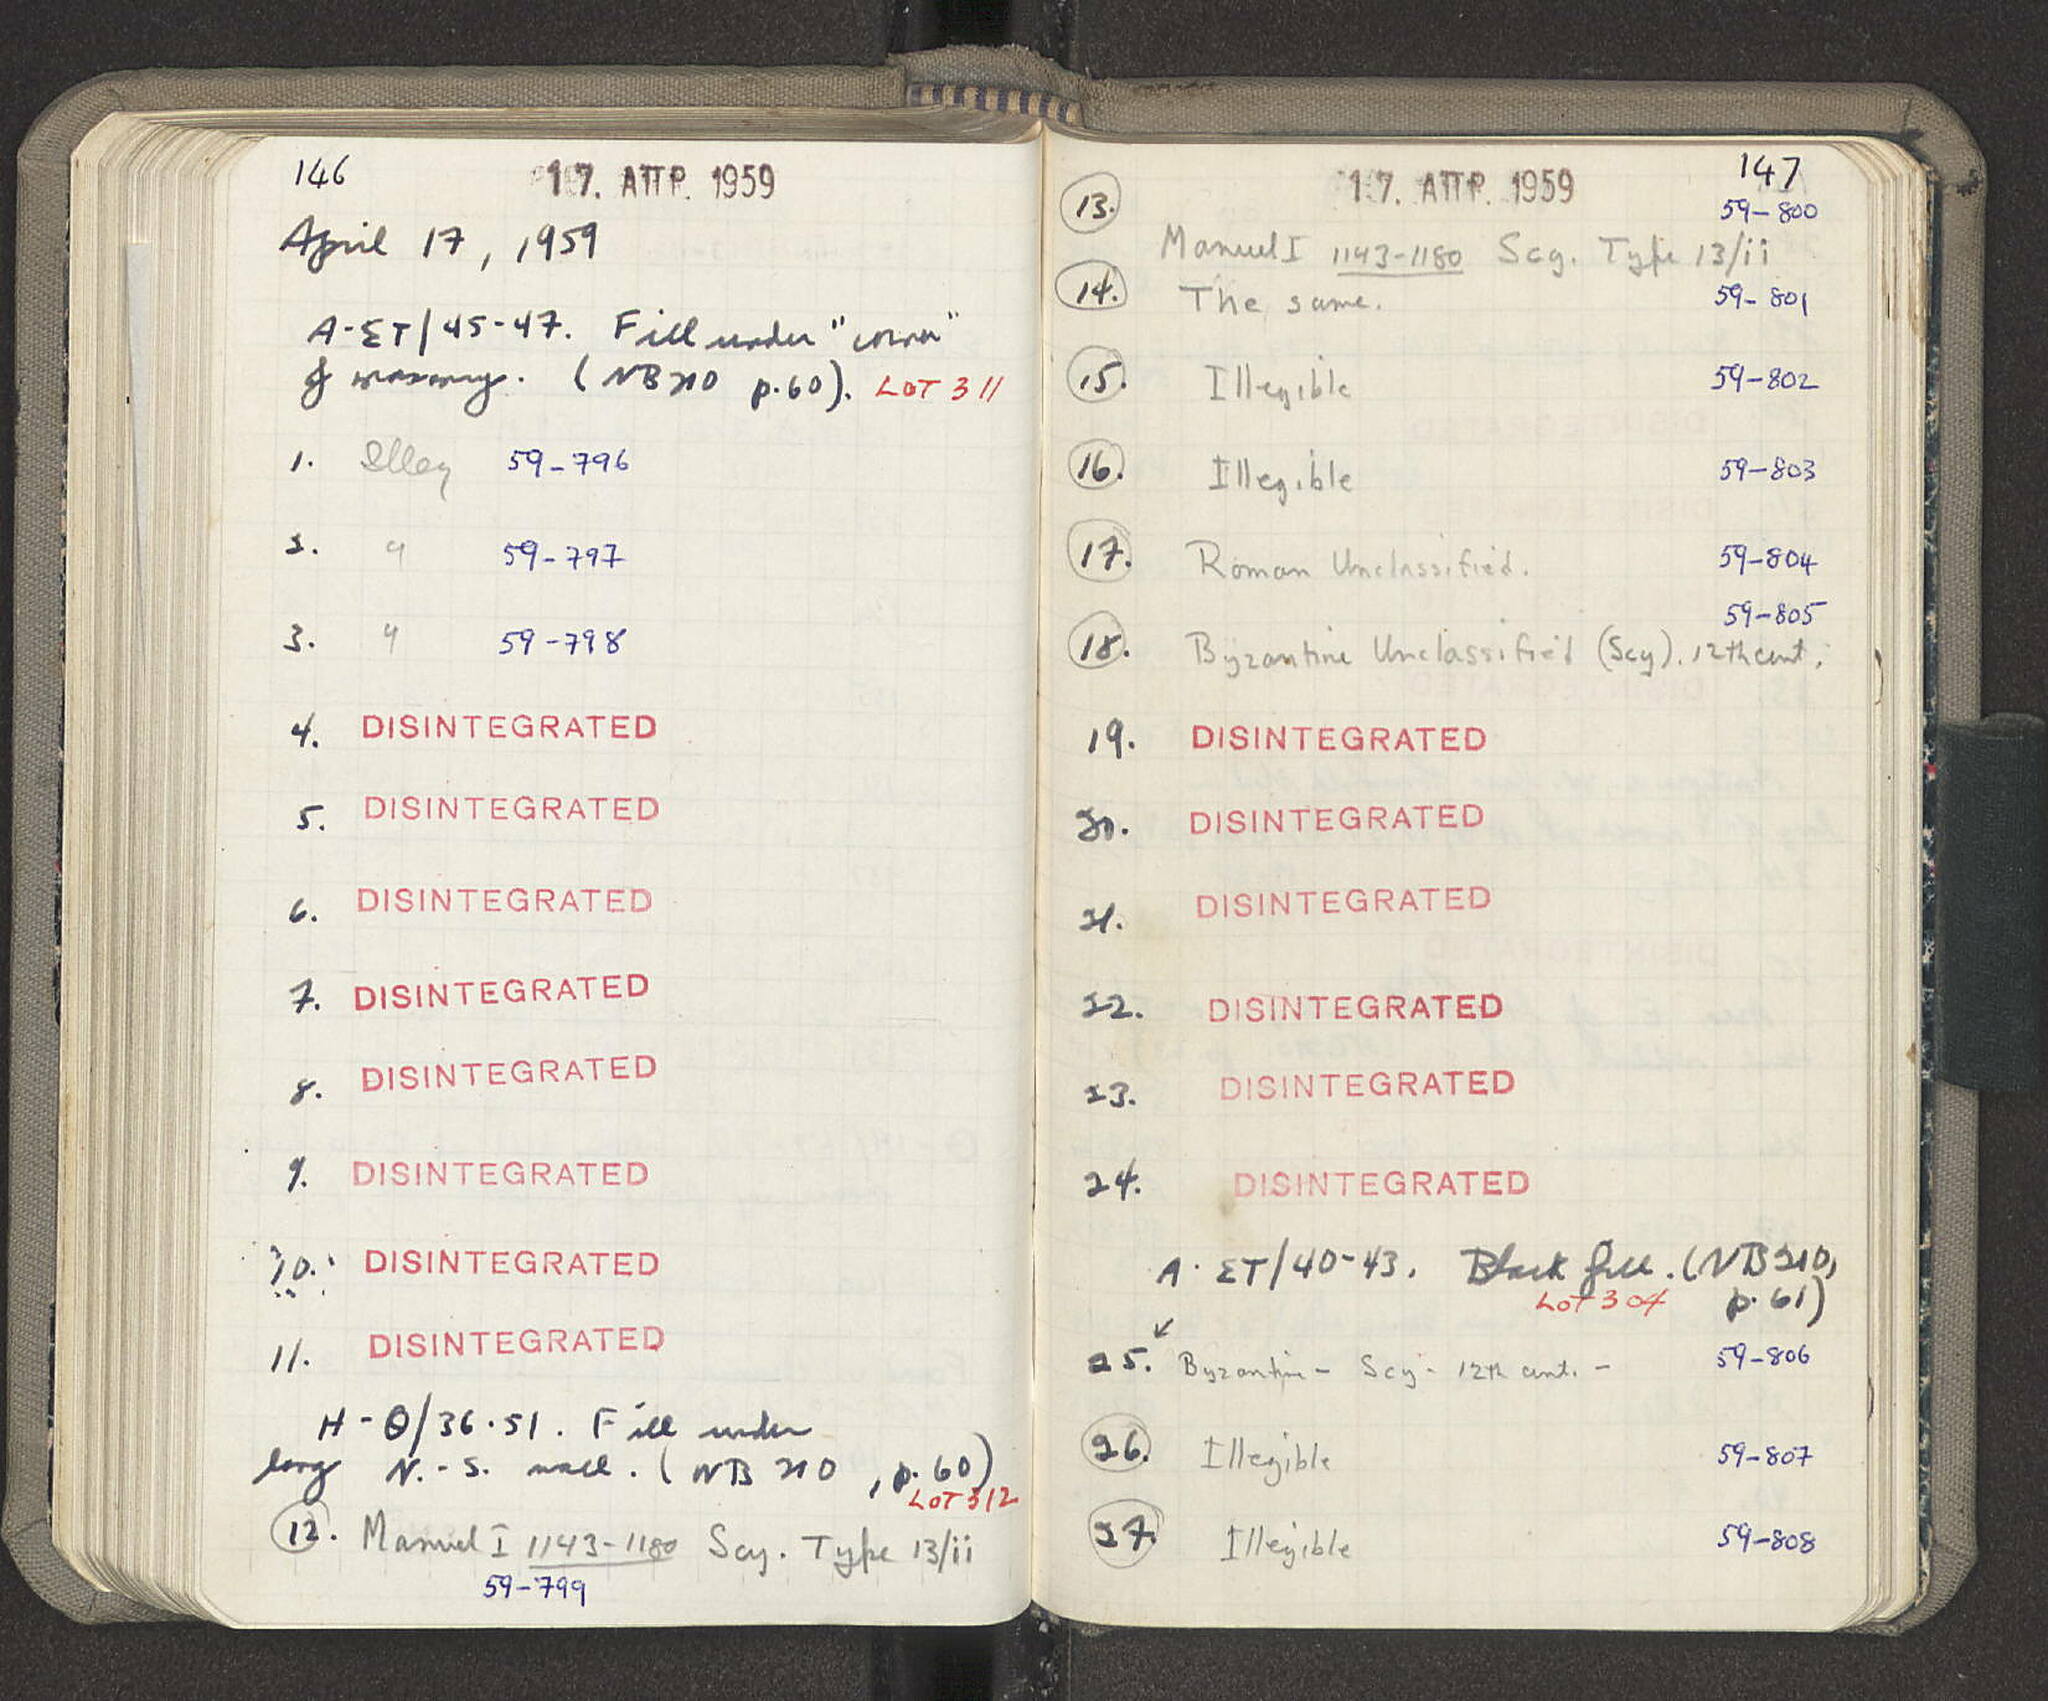 146
17. ΑΠΡ. 1959
April 17, 1959
A-ΣΤ/45-47. Fill under "corner"
of masonry. (NB 210 p.60). LOT 311
1. Illeg 59-796
2. " 59-797
3. " 59-798
4. DISINTEGRATED
5. DISINTEGRATED
6. DISINTEGRATED
7. DISINTEGRATED
8. DISINTEGRATED
9. DISINTEGRATED
10. DISINTEGRATED
11. DISINTEGRATED
H-Θ/36-51. Fill under
long N.-S. wall. (NB 210, p.60)
LOT 312
12. Manuel I 1143-1180 Scy. Type 13/ii
59-799
147
17. ΑΠΡ. 1959
13. 59-800
Manuel I 1143-1180 Scy. Type 13/ii
14. The same. 59-801
15. Illegible 59-802
16. Illegible 59-803
17. Roman Unclassified. 59-804
59-805
18. Byzantine Unclassified (Scy). 12th cent.
19. DISINTEGRATED
20. DISINTEGRATED
21. DISINTEGRATED
22. DISINTEGRATED
23. DISINTEGRATED
24. DISINTEGRATED
A-ΣΤ/40-43. Black fill. (NB 210,
LOT 304 p.61)
25. Byzantine - Scy - 12th cent. - 59-806
26. Illegible 59-807
27. Illegible 59-808